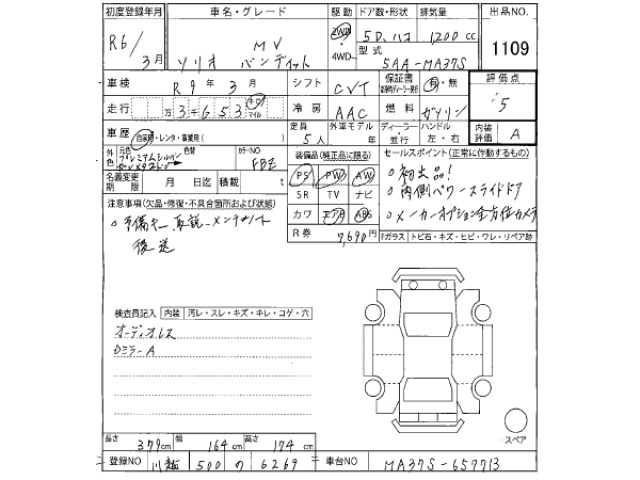 初度登録年月 車名・グレード 駆動 ドア数・形状 排気量 出品NO.
R6/3月 ソリオ MV バンディット 2WD 4WD 5D.ハコ 1,200 cc 1109
型式 5AA-MA37S
車検 R9年3月 シフト CVT 保証書 有・無 評価点 5
走行 万3千653 キロ マイル 冷房 AAC 燃料 ガソリン
車歴 自家用・レンタ・事業用( ) 定員 5人 外車モデル 年 ディーラー・並行 ハンドル 左・右 内装評価 A
外色 元色 プレミアムシルバー 色替 カラーNO FBZ
装備品(純正品に限る) セールスポイント(正常に作動するもの)
名義変更期限 月 日迄 積載 t PS PW AW
初出品!
SR TV ナビ 両側パワースライドドア
注意事項(欠品・修復・不具合箇所および状態) カワ エアB ABS メーカーオプション全方位カメラ
予備キー、取説、メンテノート
後送
R券 7,690円 Fガラス トビ石・キズ・ヒビ・ワレ・リペア跡
検査員記入 内装 汚レ・スレ・キズ・キレ・コゲ・穴
オーディオレス
Dミラー A
スペア
長さ 379cm 幅 164cm 高さ 174cm
登録NO 川越 500 ワ 6269 車台NO MA37S-657713